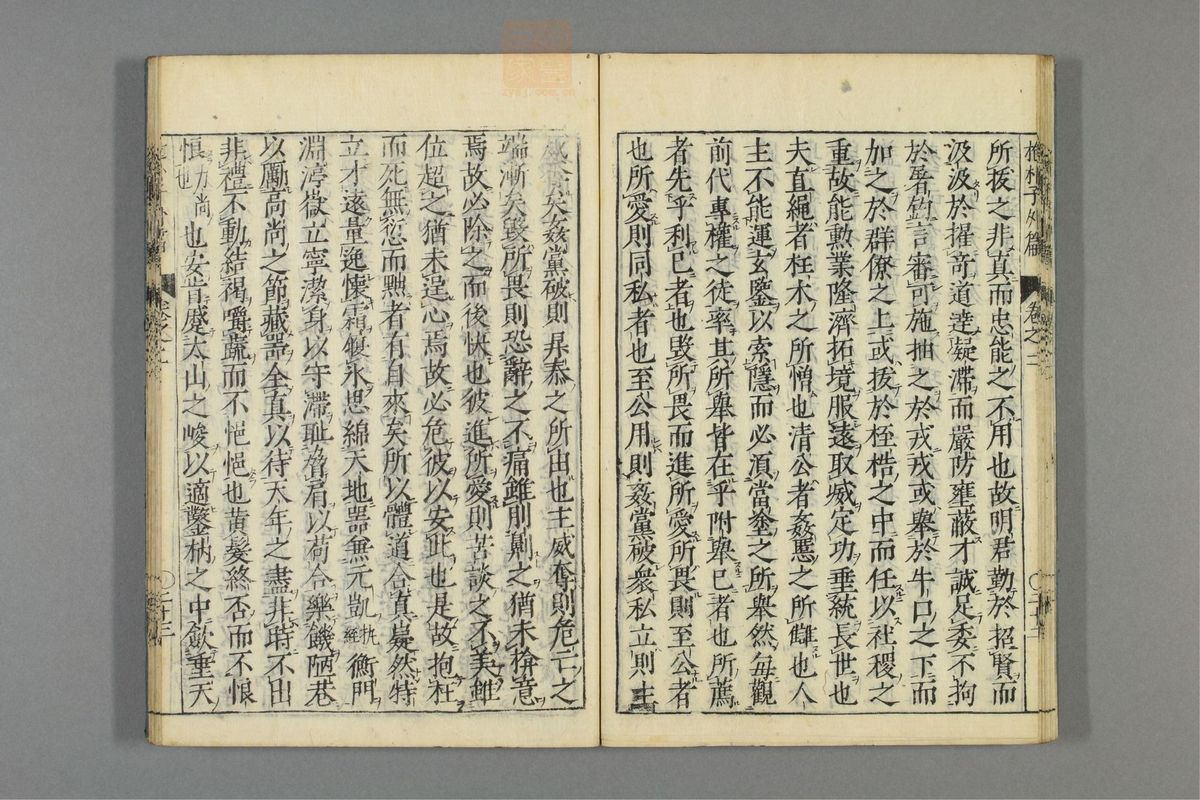 抱朴子外篇 卷之二 ○二十二
所拔之非真而忠能之不用也故明君勤於招賢而
汲汲於擢奇道達凝滯而嚴防壅蔽才誠足委不拘
於屠釣言審可施抽之於戎戎或舉於牛口之下而
加之於群僚之上或拔於桎梏之中而任以社稷之
重故能勲業隆濟拓境服遠取威定功垂統長世也
夫直繩者枉木之所憎也清公者姦慝之所讎也人
主不能運玄鑒以索隱而必須當塗之所舉然每觀
前代專權之徒率其所舉皆在乎附舉己者也所薦
者先乎利己者也毀所畏而進所愛所畏則至公者
也所愛則同私者也至公用則姦黨破衆私立則主
威奪矣姦黨破則昇泰之所由也主威奪則危亡之
端漸矣毀所畏則恐辭之不痛雖刖劓之猶未愜意
焉故必除之而後快也彼進所愛則苦談之不美雖
位超之猶未逞心焉故必危彼以安此也是故抱枉
而死無愆而黜者有自來矣所以體道合真嶷然特
立才遠量逸懷霜履氷思綿天地器無元凱杭經衡門
淵渟嶽立寧潔身以守滯耻脅肩以苟合樂饑陋巷
以勵高尚之節藏器全真以待天年之盡非時不出
非禮不動結褐嚼蔬而不悒悒也黄髮終否而不悢
悢力尚也也安肯蹙太山之峻以適鑿枘之中斂垂天